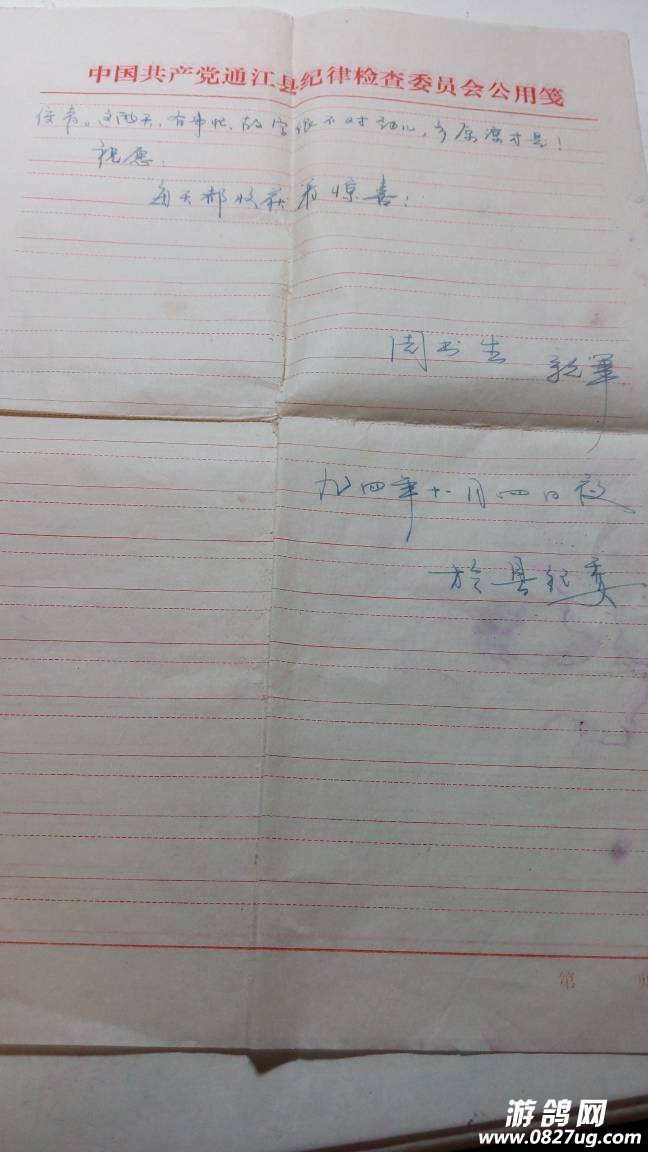 中国共产党通江县纪律检查委员会公用笺
佳音。这两天,有事忙,故字很不对劲儿,多原谅才是!
祝愿
每天都收获着惊喜!
周书生 亲笔
九四年十一月四日夜
于县纪委
第
游鸽网
www.0827ug.com